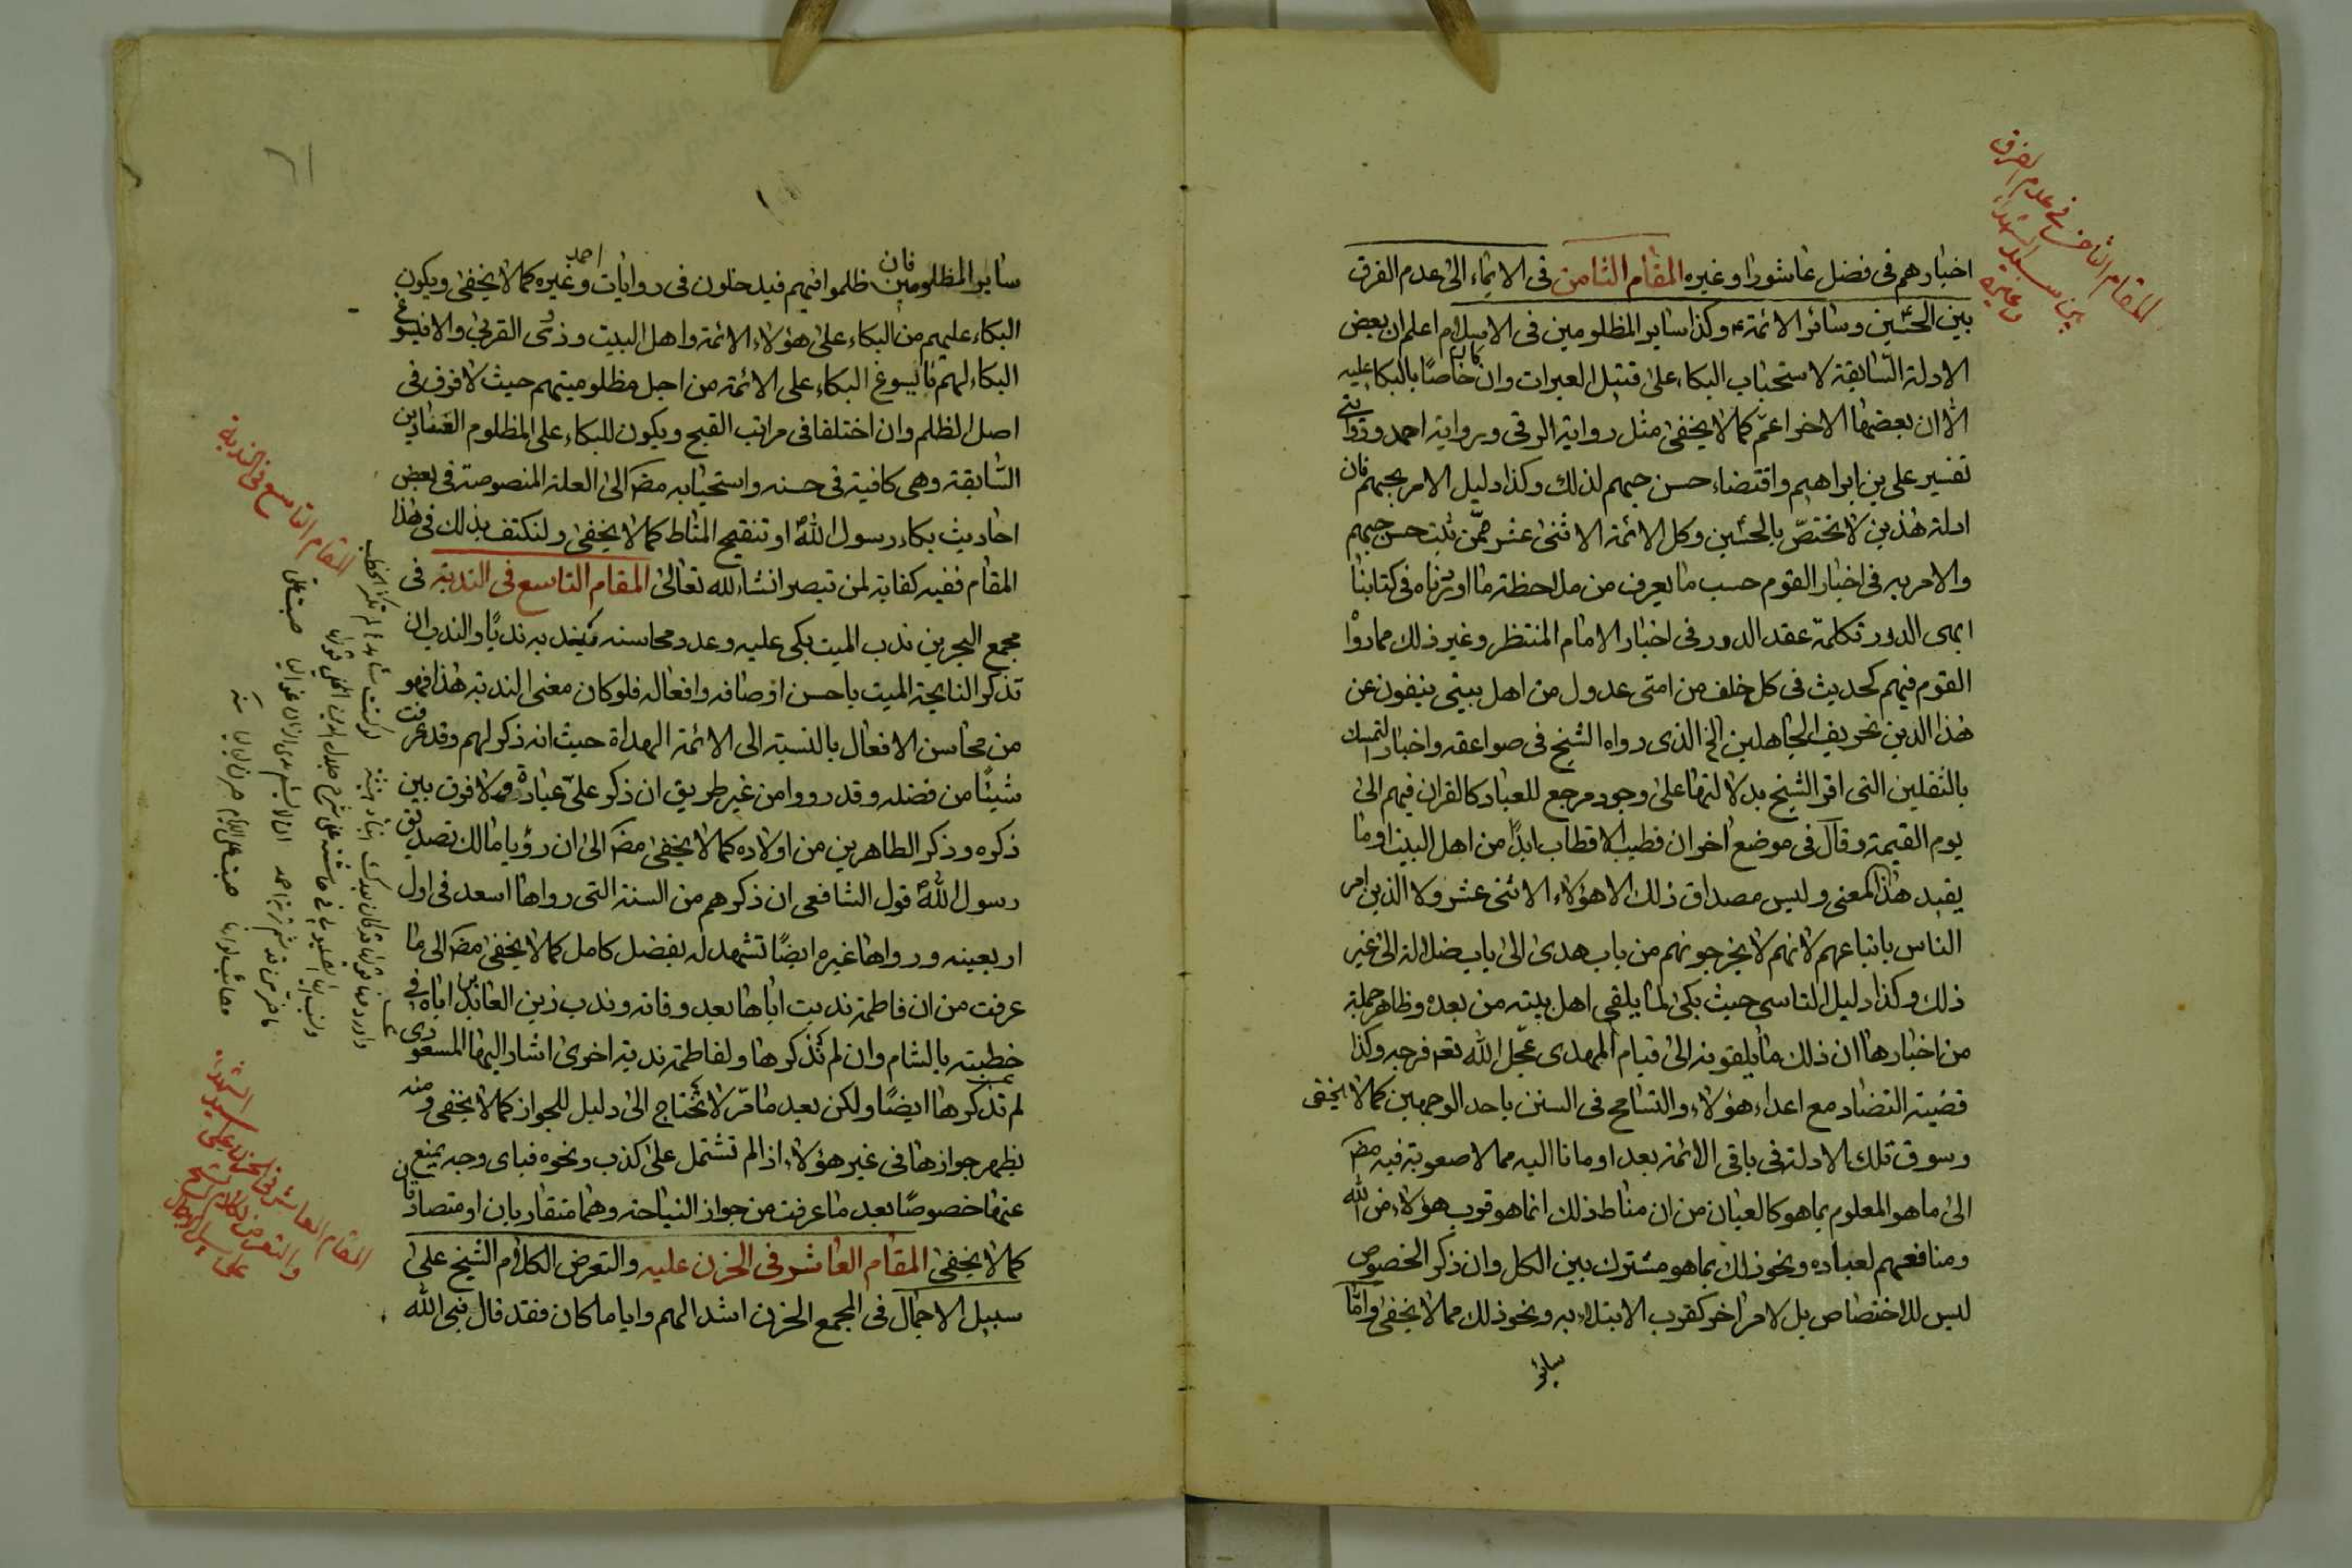 المقام الثامن فی عدم الفرق
بین سید الشهداء
وغیره
اخبارهم فی فضل عاشورا وغیره المقام الثامن فی الایماء الی عدم الفرق
بین الحسین وسائر الائمة وکذا سایر المظلومین فی الاسلام اعلم ان بعض
الادلة السّابقة لاستحباب البکاء علی قتیل العبرات وان کان خاصّا بالبکاء علیه
الّا ان بعضها الاخر اعمّ کما لا یخفی مثل روایة الرقی وبروایة احمد وروایتی
تفسیر علی بن ابراهیم واقتضاء حسن حبهم لذلك وکذا دلیل الامر بحبهم فان
ادلة هذین لا تختصّ بالحسین وکل الائمة الاثنی عشر ممّن ثبت حسن حبهم
والامر به فی اخبار القوم حسب ما یعرف من ملاحظة ما اوردناه فی کتابنا
ابهی الدرر تکملة عقد الدرر فی اخبار الامام المنتظر وغیر ذلك مما رووا
القوم فیهم کحدیث فی کل خلف من امتی عدول من اهل بیتی ینفون عن
هذا الدین تحریف الجاهلین الخ الذی رواه الشیخ فی صواعقه واخبار التمسك
بالثقلین التی اقر الشیخ بدلالتها علی وجود مرجع للعباد کالقران فیهم الی
یوم القیمة وقال فی موضع اخر ان قطب الاقطاب ابدًا من اهل البیت او ما
یفید هذا المعنی ولیس مصداق ذلك الا هؤلاء الاثنی عشر ولا الذین امر
الناس باتباعهم لانهم لا یخرجونهم من باب هدی الی باب ضلالة الی غیر
ذلك وکذا دلیل التاسی حیث بکی لما یلقی اهل بیته من بعده وظاهر جملة
من اخبارها ان ذلك ما یلقونه الی قیام المهدی عجّل الله تعم فرجه وکذا
قضیة التضاد مع اعداء هؤلاء والتسامح فی السنن باحد الوجهین کما لا یخفی
وسوق تلك الادلة فی باقی الائمة بعد اومانا الیه مما لا صعوبة فیه مضر
الی ما هو المعلوم بما هو کالعیان من ان مناط ذلك انما هو قرب هؤلاء من الله
ومنافعهم لعباده ونحو ذلك بما هو مشترك بین الکل وان ذکر الخصوص
لیس للاختصاص بل لامر اخر کقرب الابتلاء به ونحو ذلك مما لا یخفی وامّا
سائر
سایر المظلومین فان ظلموا فیهم فیدخلون فی روایات احمد وغیره کما لا یخفی ویکون
البکاء علیهم من البکاء علی هؤلاء الائمة واهل البیت وذوی القربی والا فیسوغ
البکاء لهم ما یسوغ البکاء علی الائمة من اجل مظلومیتهم حیث لا فرق فی
اصل الظلم وان اختلفا فی مراتب القبح ویکون للبکاء علی المظلوم العنادین
السّابقة وهی کافیة فی حسنه واستحبابه مضر الی العلة المنصوصة فی بعض
احادیث بکاء رسول الله او تنقیح المناط کما لا یخفی ولنکتف بذلك فی هذا
المقام ففیه کفایة لمن تبصر انشاء الله تعالی المقام التاسع فی الندبة فی
مجمع البحرین ندب المیت بکی علیه وعدد محاسنه یندبه ندبًا والندب ان
تذکر النایحة المیت باحسن اوصافه وافعاله فلو کان معنی الندبة هذا فهو
من محاسن الافعال بالنسبة الی الائمة الهداة حیث انه ذکر لهم وقد عرفت
شیئًا من فضله وقد رووا من غیر طریق ان ذکر علیّ عبادة ولا فرق بین
ذکره وذکر الطاهرین من اولاده کما لا یخفی مضر الی ان رؤیا مالك تصدیق
رسول الله قول الشافعی ان ذکرهم من السنة التی رواها اسعد فی اول
اربعینه ورواها غیره ایضًا تشهد له بفضل کامل کما لا یخفی مضر الی ما
عرفت من ان فاطمة ندبت اباها بعد وفاته وندب زین العابدین اباه فی
خطبته بالشام وان لم نذکرها ولفاطمة ندبة اخری اشار الیها المسعودی
لم نذکرها ایضًا ولکن بعد ما مرّ لا نحتاج الی دلیل للجواز کما لا یخفی ومنه
یظهر جوازها فی غیر هؤلاء اذا لم تشتمل علی کذب ونحوه فبای وجه یمنع
عنها خصوصًا بعد ما عرفت من جواز النیاحة وهما متقاربان او متصادقان
کما لا یخفی المقام العاشر فی الحزن علیه والتعرض الکلام الشیخ علی
سبیل الاجمال فی المجمع الحزن اشد الهم وایاما کان فقد قال نبی الله
المقام التاسع فی الندبة
صبت علی
الایام صرن لیالیا
المقام العاشر فی الحزن علی سید الشهداء
والتعرض لکلام الشیخ
علی سبیل الاجمال